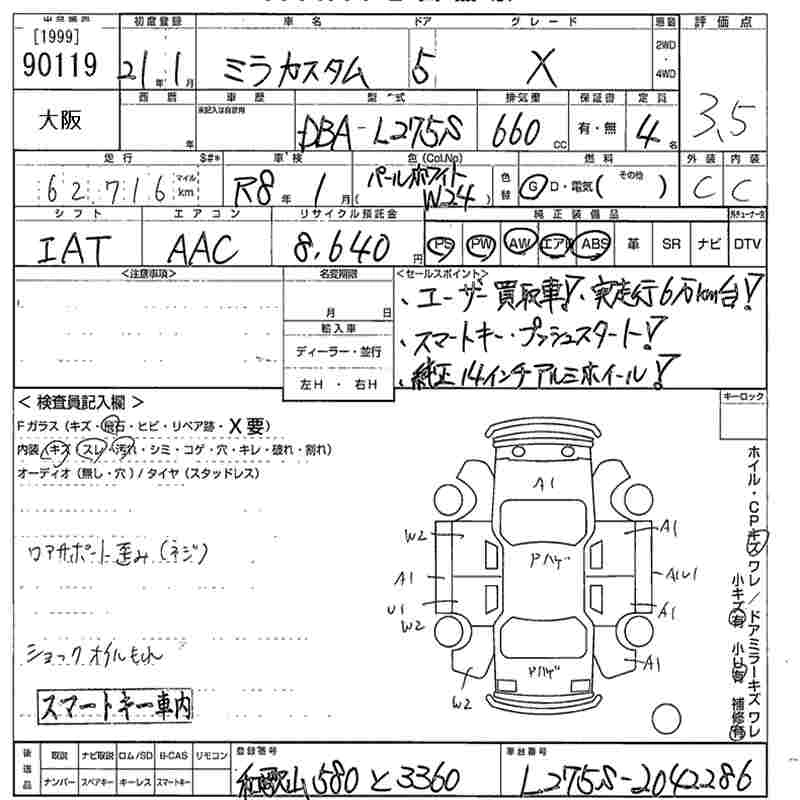 [1999]
90119
初度登録 車名 ドア グレード 評価点
21年1月 ミラカスタム 5 X 2WD・4WD 3.5
大阪
西暦 車歴 型式 排気量 保証書 定員
年 未記入は自家用 DBA-L275S 660cc 有・無 4名
走行 S#* 車検 色(Col,No) 色替 燃料 外装 内装
62,716 マイル km R8年1月 (パールホワイト W24) G D・電気(その他) C C
シフト エアコン リサイクル預託金 純正装備品
IAT AAC 8,640円 PS PW AW エアB ABS 革 SR ナビ DTV
<注意事項> 名変期限 <セールスポイント>
月 日 、ユーザー買取車!、実走行6万km台!
輸入車
ディーラー・並行 、スマートキー・プッシュスタート!
左H・右H 、純正14インチアルミホイール!
<検査員記入欄> キーロック
Fガラス(キズ・飛石・ヒビ・リペア跡・X要)
内装(キズ・スレ・汚れ・シミ・コゲ・穴・キレ・破れ・割れ)
オーディオ(無し・穴)/タイヤ(スタッドレス)
A1
W2 A1
アハゲ
ロアサポート歪み(ネジ)
A1 A1U1
U1 A1
W2
ショックオイルもれ
アハゲ A1
W2
スマートキー車内
ホイル・CPキズワレ/ドアミラーキズワレ
小キズ有 小U有 補修有
後送品 取説 ナビ取説 ロム/SD B-CAS リモコン 登録番号 車台番号
ナンバー スペアキー キーレス スマートキー 和歌山 580 と 3360 L275S-2042286